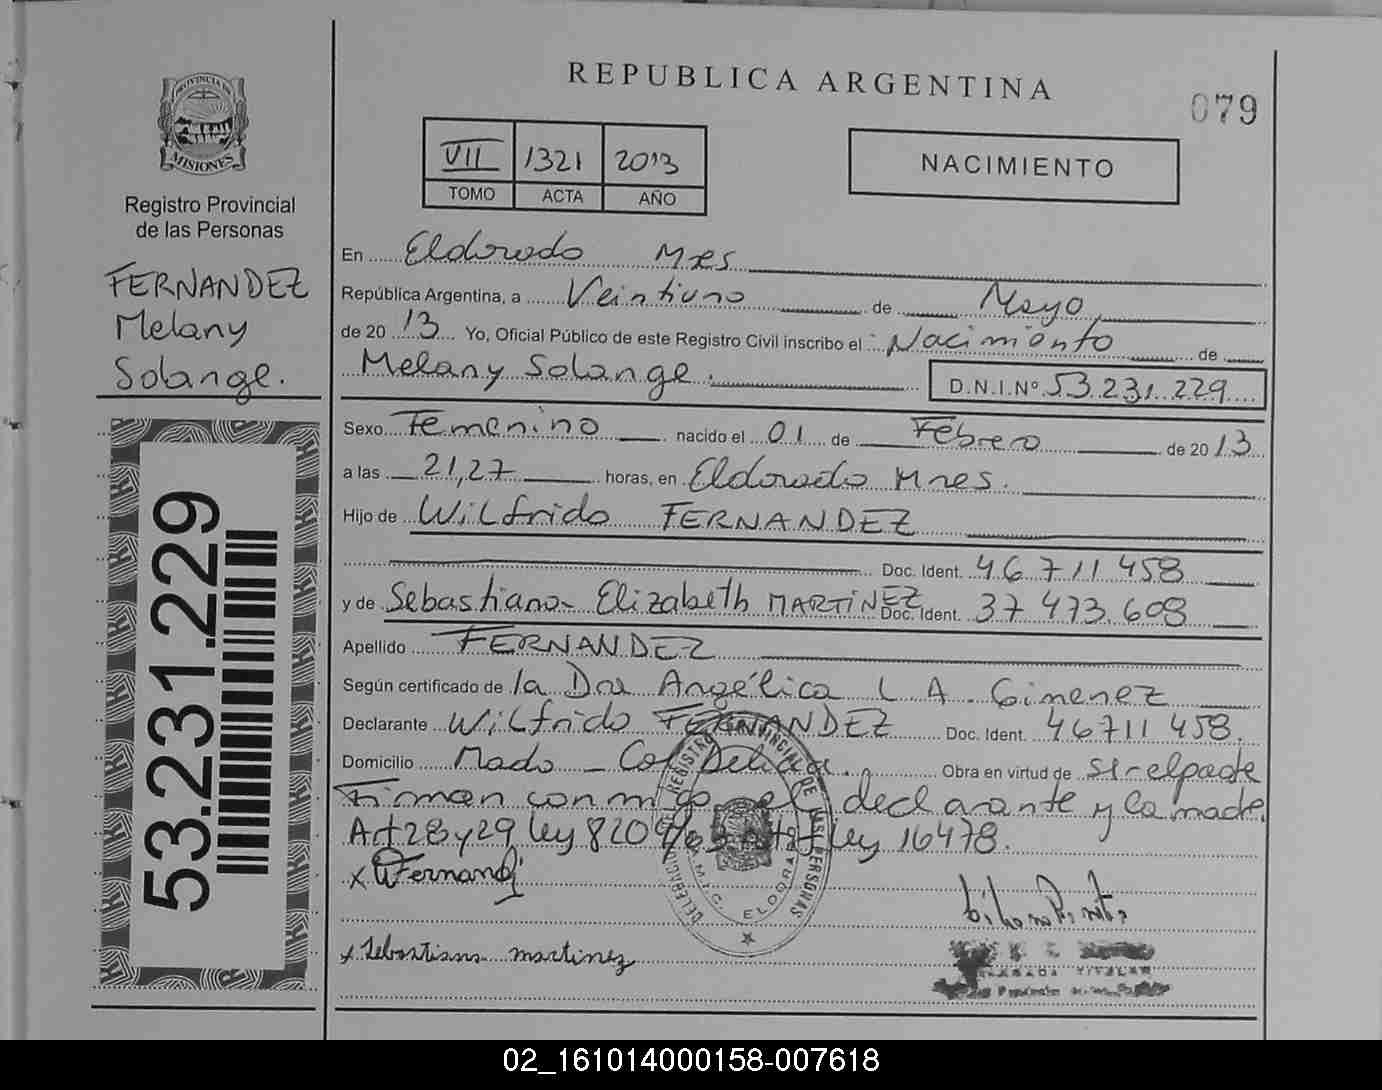 REPUBLICA ARGENTINA
079
PROVINCIA DE
MISIONES
Registro Provincial
de las Personas
FERNANDEZ
Melany
Solange.
53.231.229
VII 1321 2013
TOMO ACTA AÑO
NACIMIENTO
En Eldorado Mnes
República Argentina, a Veintiuno de Mayo
de 20 13 Yo, Oficial Público de este Registro Civil inscribo el Nacimiento de
Melany Solange. D.N.I.Nº 53.231.229
Sexo Femenino nacido el 01 de Febrero de 20 13
a las 21,27 horas, en Eldorado Mnes.
Hijo de Wilfrido FERNANDEZ
Doc. Ident. 46 711 458
y de Sebastiana Elizabeth MARTINEZ Doc. Ident. 37 473.608
Apellido FERNANDEZ
Según certificado de la Dra Angélica L A. Gimenez
Declarante Wilfrido FERNANDEZ Doc. Ident. 46711 458.
Domicilio Mado - Col Delicia. Obra en virtud de
Firman conmigo el declarante y la madre.
Art 28 y 29 ley 8204/63 ley 16478.
x WFernandez
x Sebastiana martinez
REGISTRO PROVINCIAL DE LAS PERSONAS
ELDORADO
02_161014000158-007618